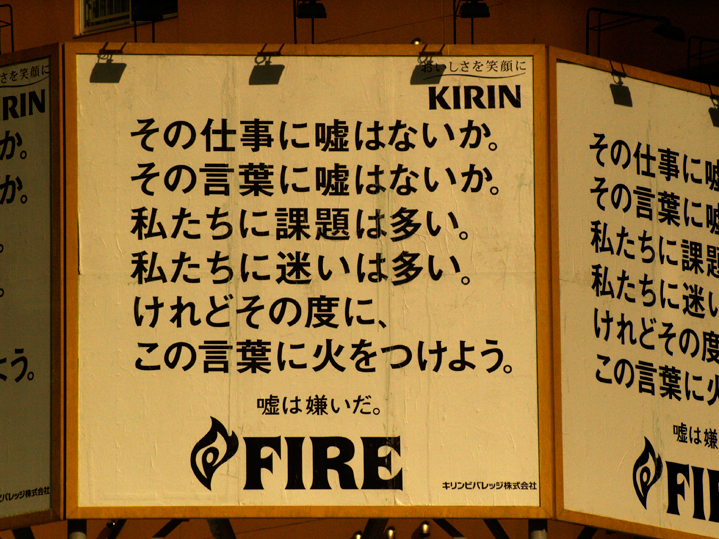 おいしさを笑顔に
KIRIN
その仕事に嘘はないか。
その言葉に嘘はないか。
私たちに課題は多い。
私たちに迷いは多い。
けれどその度に、
この言葉に火をつけよう。
嘘は嫌いだ。
FIRE
キリンビバレッジ株式会社
さを笑顔に
KIRIN
か。
か。
。
。
よう。
ンビバレッジ株式会社
その仕事に嘘
その言葉に嘘
私たちに課題
私たちに迷い
けれどその度
この言葉に火
嘘は嫌
FI